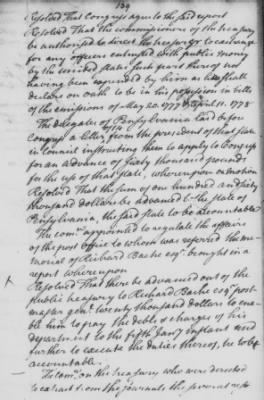 139
Resolved That Congress agree to the said report
Resolved That the commissioners of the treasury
be authorised to direct the treasurer to exchange
for any officers entrusted with public money
by the united states such part thereof not
having been expended by him as he shall
declare on oath to be in his possession in bills
of the emissions of May 20. 1777 & April 11. 1778
The delegates of Pensylvania laid before
Congress a letter from the president of that state
in Council instructing them to apply to Congress
for an advance of sixty thousand pounds
for the use of that state, whereupon on motion
Resolved That the sum of one hundred and sixty
thousand dollars be advanced to the state of
Pensylvania, the said state to be accountable
The comee. appointed to regulate the affairs
of the post office to whom was referred the me-
morial of Richard Bache esqr. brought in a
report whereupon
Resolved That there be advanced out of the
public treasury to Richard Bache esqr. post-
master genl. twenty thousand dollars to ena-
ble him to pay the debts & charges of his
department to the fifth Jany. instant and
further to execute the duties thereof, he to be
accountable.
The comee. on the treasury who were directed
to extract from the journals the several reso